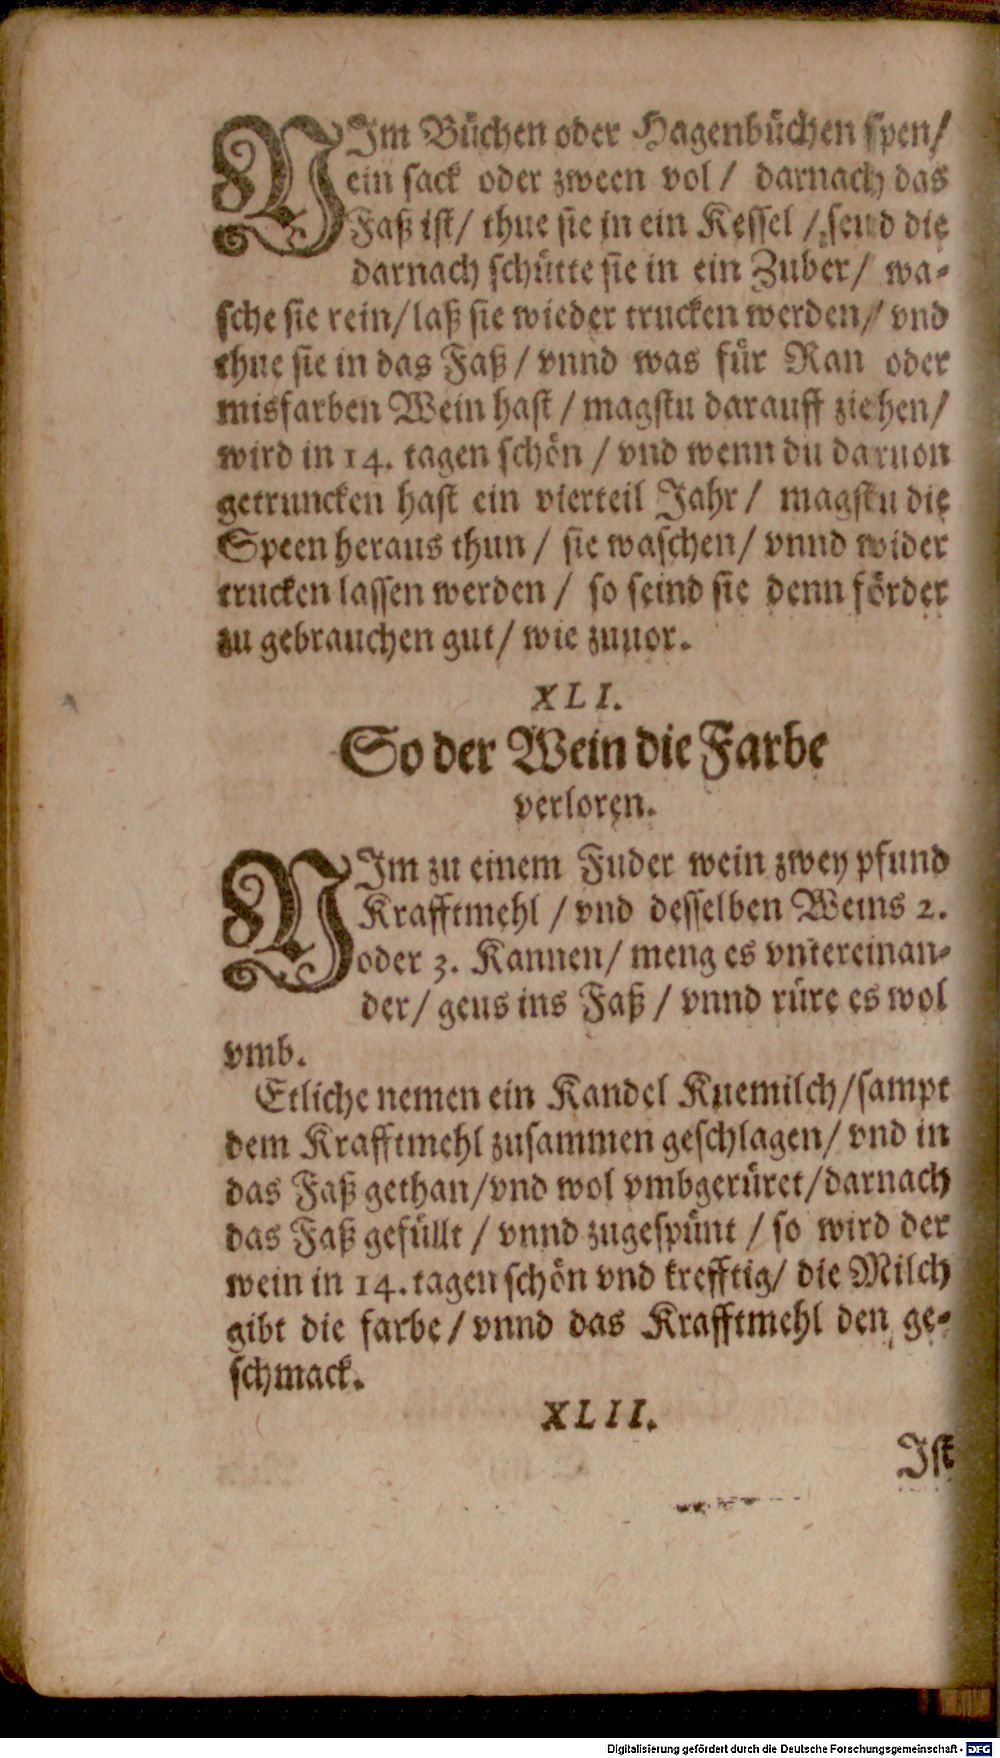 NIm Büchen oder Hagenbüchen spen/
ein sack oder zween vol / darnach das
Faß ist/ thue sie in ein Kessel / seud die
darnach schütte sie in ein Zuber/ wa-
sche sie rein/ laß sie wieder trucken werden/ vnd
thue sie in das Faß / vnnd was für Ran oder
misfarben Wein hast / magstu darauff ziehen/
wird in 14. tagen schön / vnd wenn du daruon
getruncken hast ein vierteil Jahr / magstu die
Speen heraus thun / sie waschen/ vnnd wider
trucken lassen werden / so seind sie denn förder
zu gebrauchen gut/ wie zuuor.
XLI.
So der Wein die Farbe
verloren.
NIm zu einem Fuder wein zwey pfund
Krafftmehl / vnd desselben Weins 2.
oder 3. Kannen/ meng es vntereinan-
der/ geus ins Faß / vnnd rüre es wol
vmb.
Etliche nemen ein Kandel Kuemilch/sampt
dem Krafftmehl zusammen geschlagen/ vnd in
das Faß gethan/vnd wol vmbgerüret/darnach
das Faß gefüllt / vnnd zugespünt / so wird der
wein in 14. tagen schön vnd krefftig/ die Milch
gibt die farbe/ vnnd das Krafftmehl den ge-
schmack.
XLII.
Ist
Digitalisierung gefördert durch die Deutsche Forschungsgemeinschaft - DFG